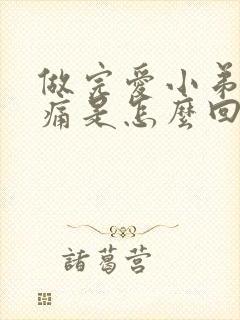 做完愛小弟
痛是怎麼回
諸葛营